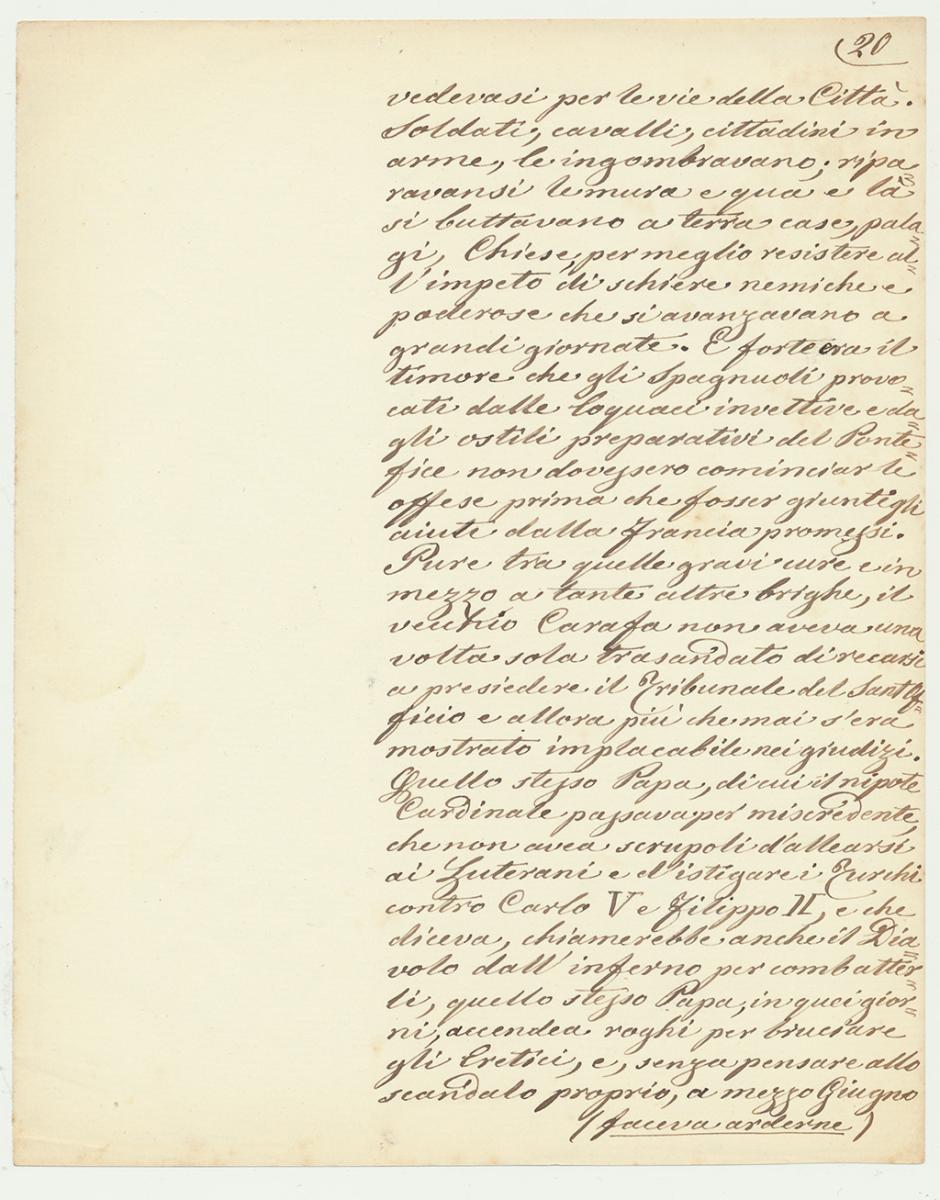 20
vedevasi per le vie della Città.
Soldati, cavalli, cittadini in
arme, le ingombravano; ripa
ravansi le mura e qua e là
si buttavano a terra case, pala„
gi, Chiese, per meglio resistere al„
l'impeto di schiere nemiche e
poderose che si avanzavano a
grandi giornate. E forte era il
timore che gli Spagnuoli provo„
cati dalle loquaci invettive e da„
gli ostili preparativi del Ponte„
fice non dovessero cominciar le
offese prima che fosser giunti gli
aiuti dalla Francia promessi.
Pure tra quelle gravi cure e in
mezzo a tante altre brighe, il
vecchio Carafa non aveva una
volta sola trasandato di recarsi
a presiedere il Tribunale del Sant'Of„
ficio e allora più che mai s'era
mostrato implacabile nei giudizi.
Quello stesso Papa, di cui il nipote
Cardinale passava per miscredente,
che non avea scrupoli d'allearsi
ai Luterani e d'istigare i Turchi
contro Carlo V e Filippo II, e che
diceva, chiamerebbe anche il Dia„
volo dall'inferno per combatter„
li, quello stesso Papa, in quei gior„
ni, accendea roghi per bruciare
gli Eretici, e, senza pensare allo
scandalo proprio, a mezzo Giugno
(faceva arderne)